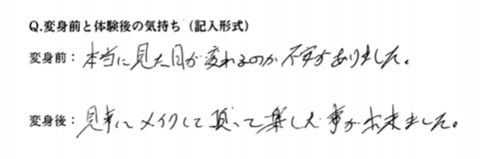 Q.変身前と体験後の気持ち（記入形式）
変身前：本当に見た目が変れるのか不安がありました。
変身後：見事にメイクして頂いて楽しむ事が出来ました。